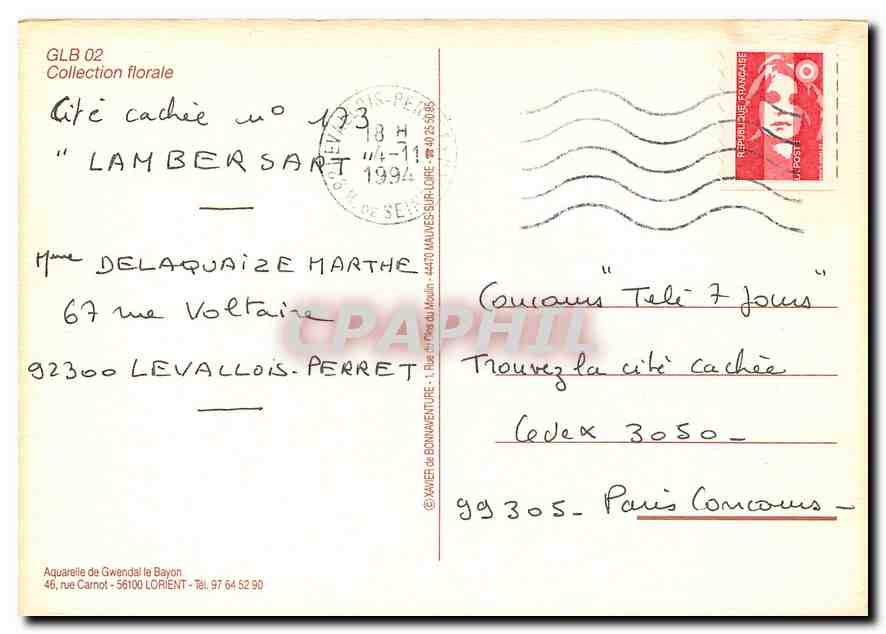 GLB 02
Collection florale
Cité cachée no 173
" LAMBERSART "
Mme DELAQUAIZE MARTHE
67 rue Voltaire
92300 LEVALLOIS-PERRET
Aquarelle de Gwendal le Bayon
46, rue Carnot - 56100 LORIENT - Tél. 97 64 52 90
© XAVIER de BONNAVENTURE - 1, Rue du Clos du Moulin - 44470 MAUVES-SUR-LOIRE - ☎ 40 25 50 85
18 H
4-11
1994
92 H. DE SEINE
REPUBLIQUE FRANÇAISE
LA POSTE
Concours "Télé 7 Jours"
Trouvez la cité cachée
Cedex 3050-
99305- Paris Concours-
CPAPHIL